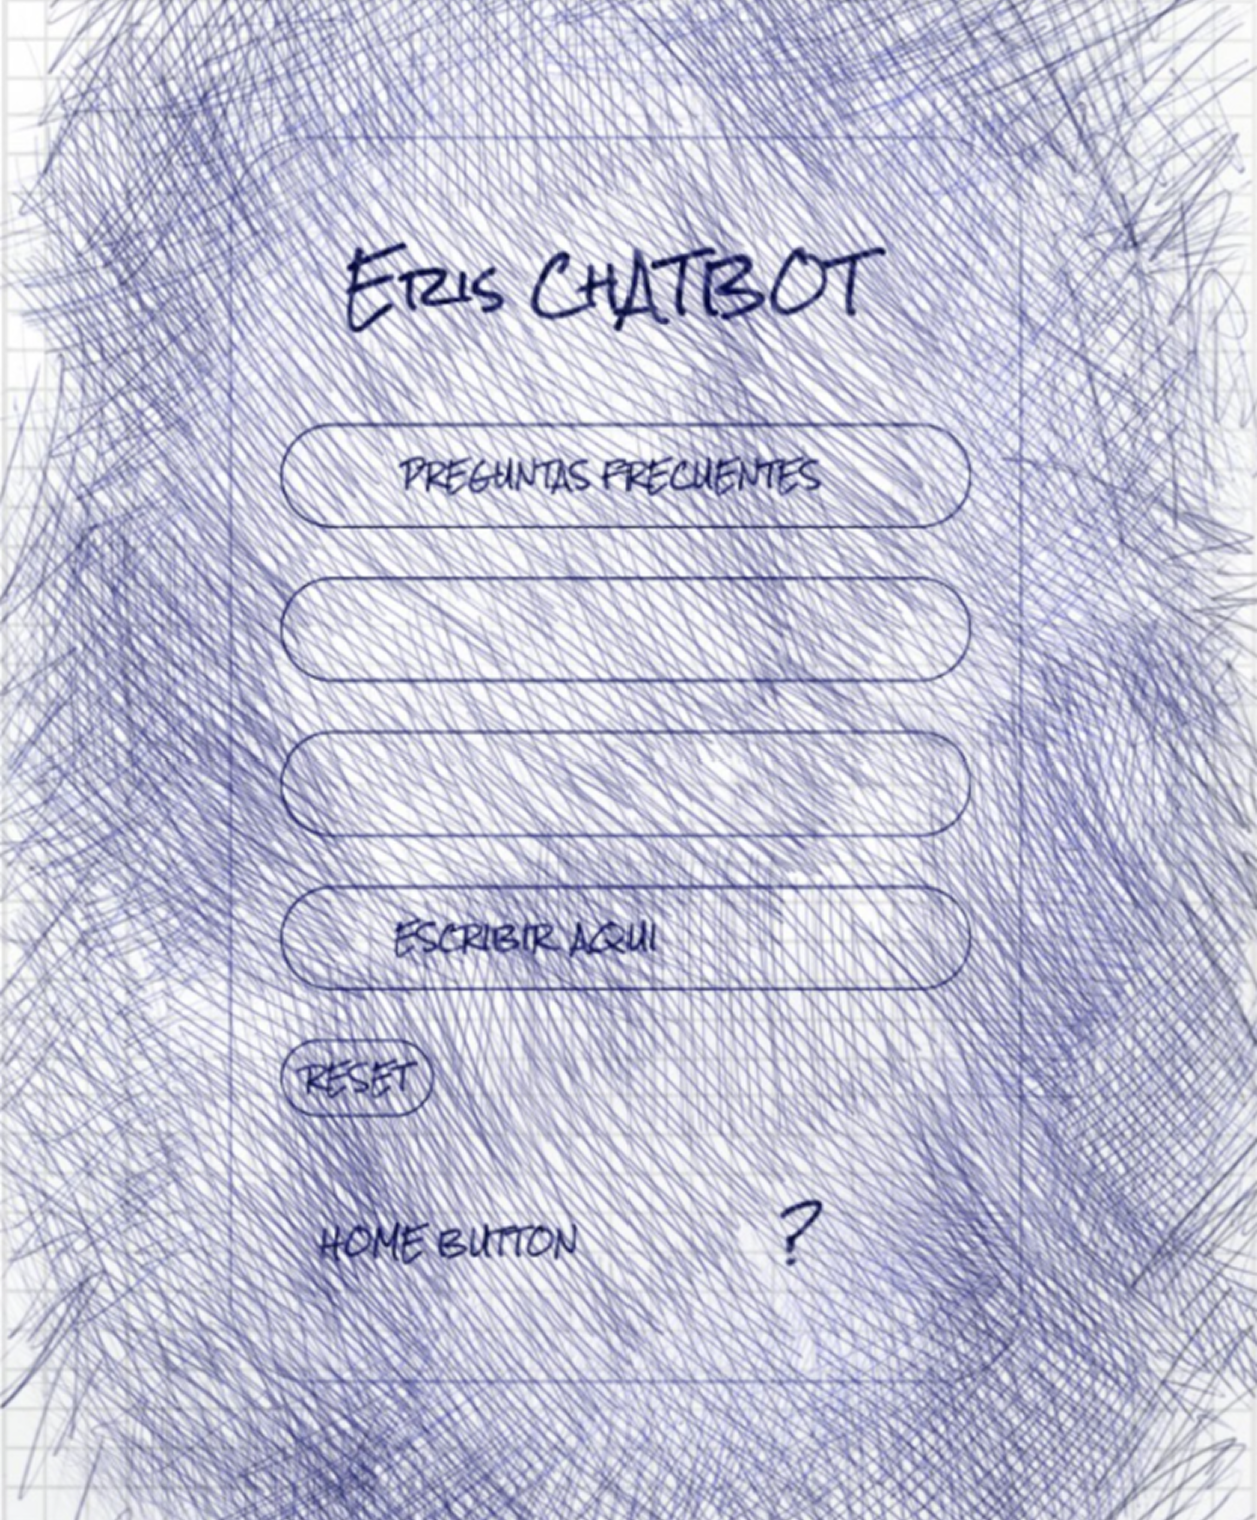 ERIS CHATBOT
PREGUNTAS FRECUENTES
ESCRIBIR AQUI
RESET
HOME BUTTON ?